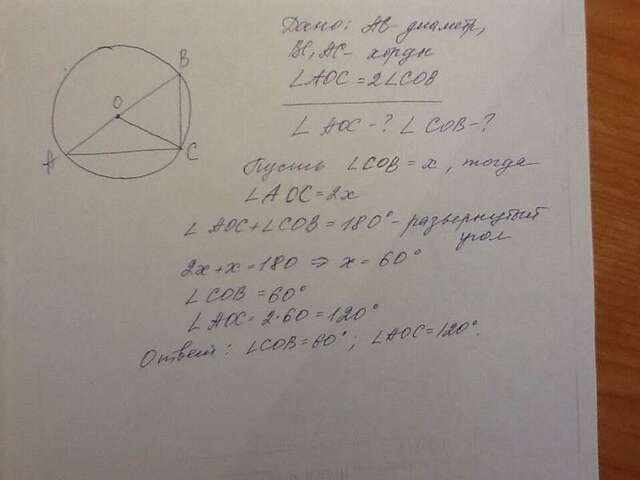 Дано: AB - диаметр,
BC, AC - хорды
∠AOC = 2∠COB
∠AOC - ? ∠COB - ?
Пусть ∠COB = x, тогда
∠AOC = 2x
∠AOC + ∠COB = 180° - развернутый
угол
2x + x = 180 ⇒ x = 60°
∠COB = 60°
∠AOC = 2·60 = 120°
Ответ: ∠COB = 60°; ∠AOC = 120°.
B
O
A
C